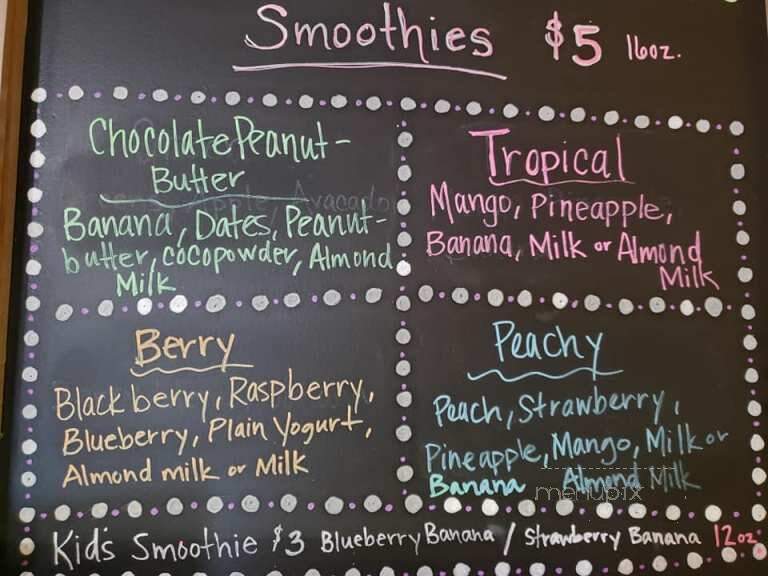 Smoothies $5 16oz.
Chocolate Peanut-
Butter
Banana, Dates, Peanut-
butter, cocopowder, Almond
Milk
Tropical
Mango, Pineapple,
Banana, Milk or Almond
Milk
Berry
Blackberry, Raspberry,
Blueberry, Plain Yogurt,
Almond milk or Milk
Peachy
Peach, Strawberry,
Pineapple, Mango, Milk or
Banana Almond Milk
menupix
Kid's Smoothie $3 Blueberry Banana / Strawberry Banana 12oz.